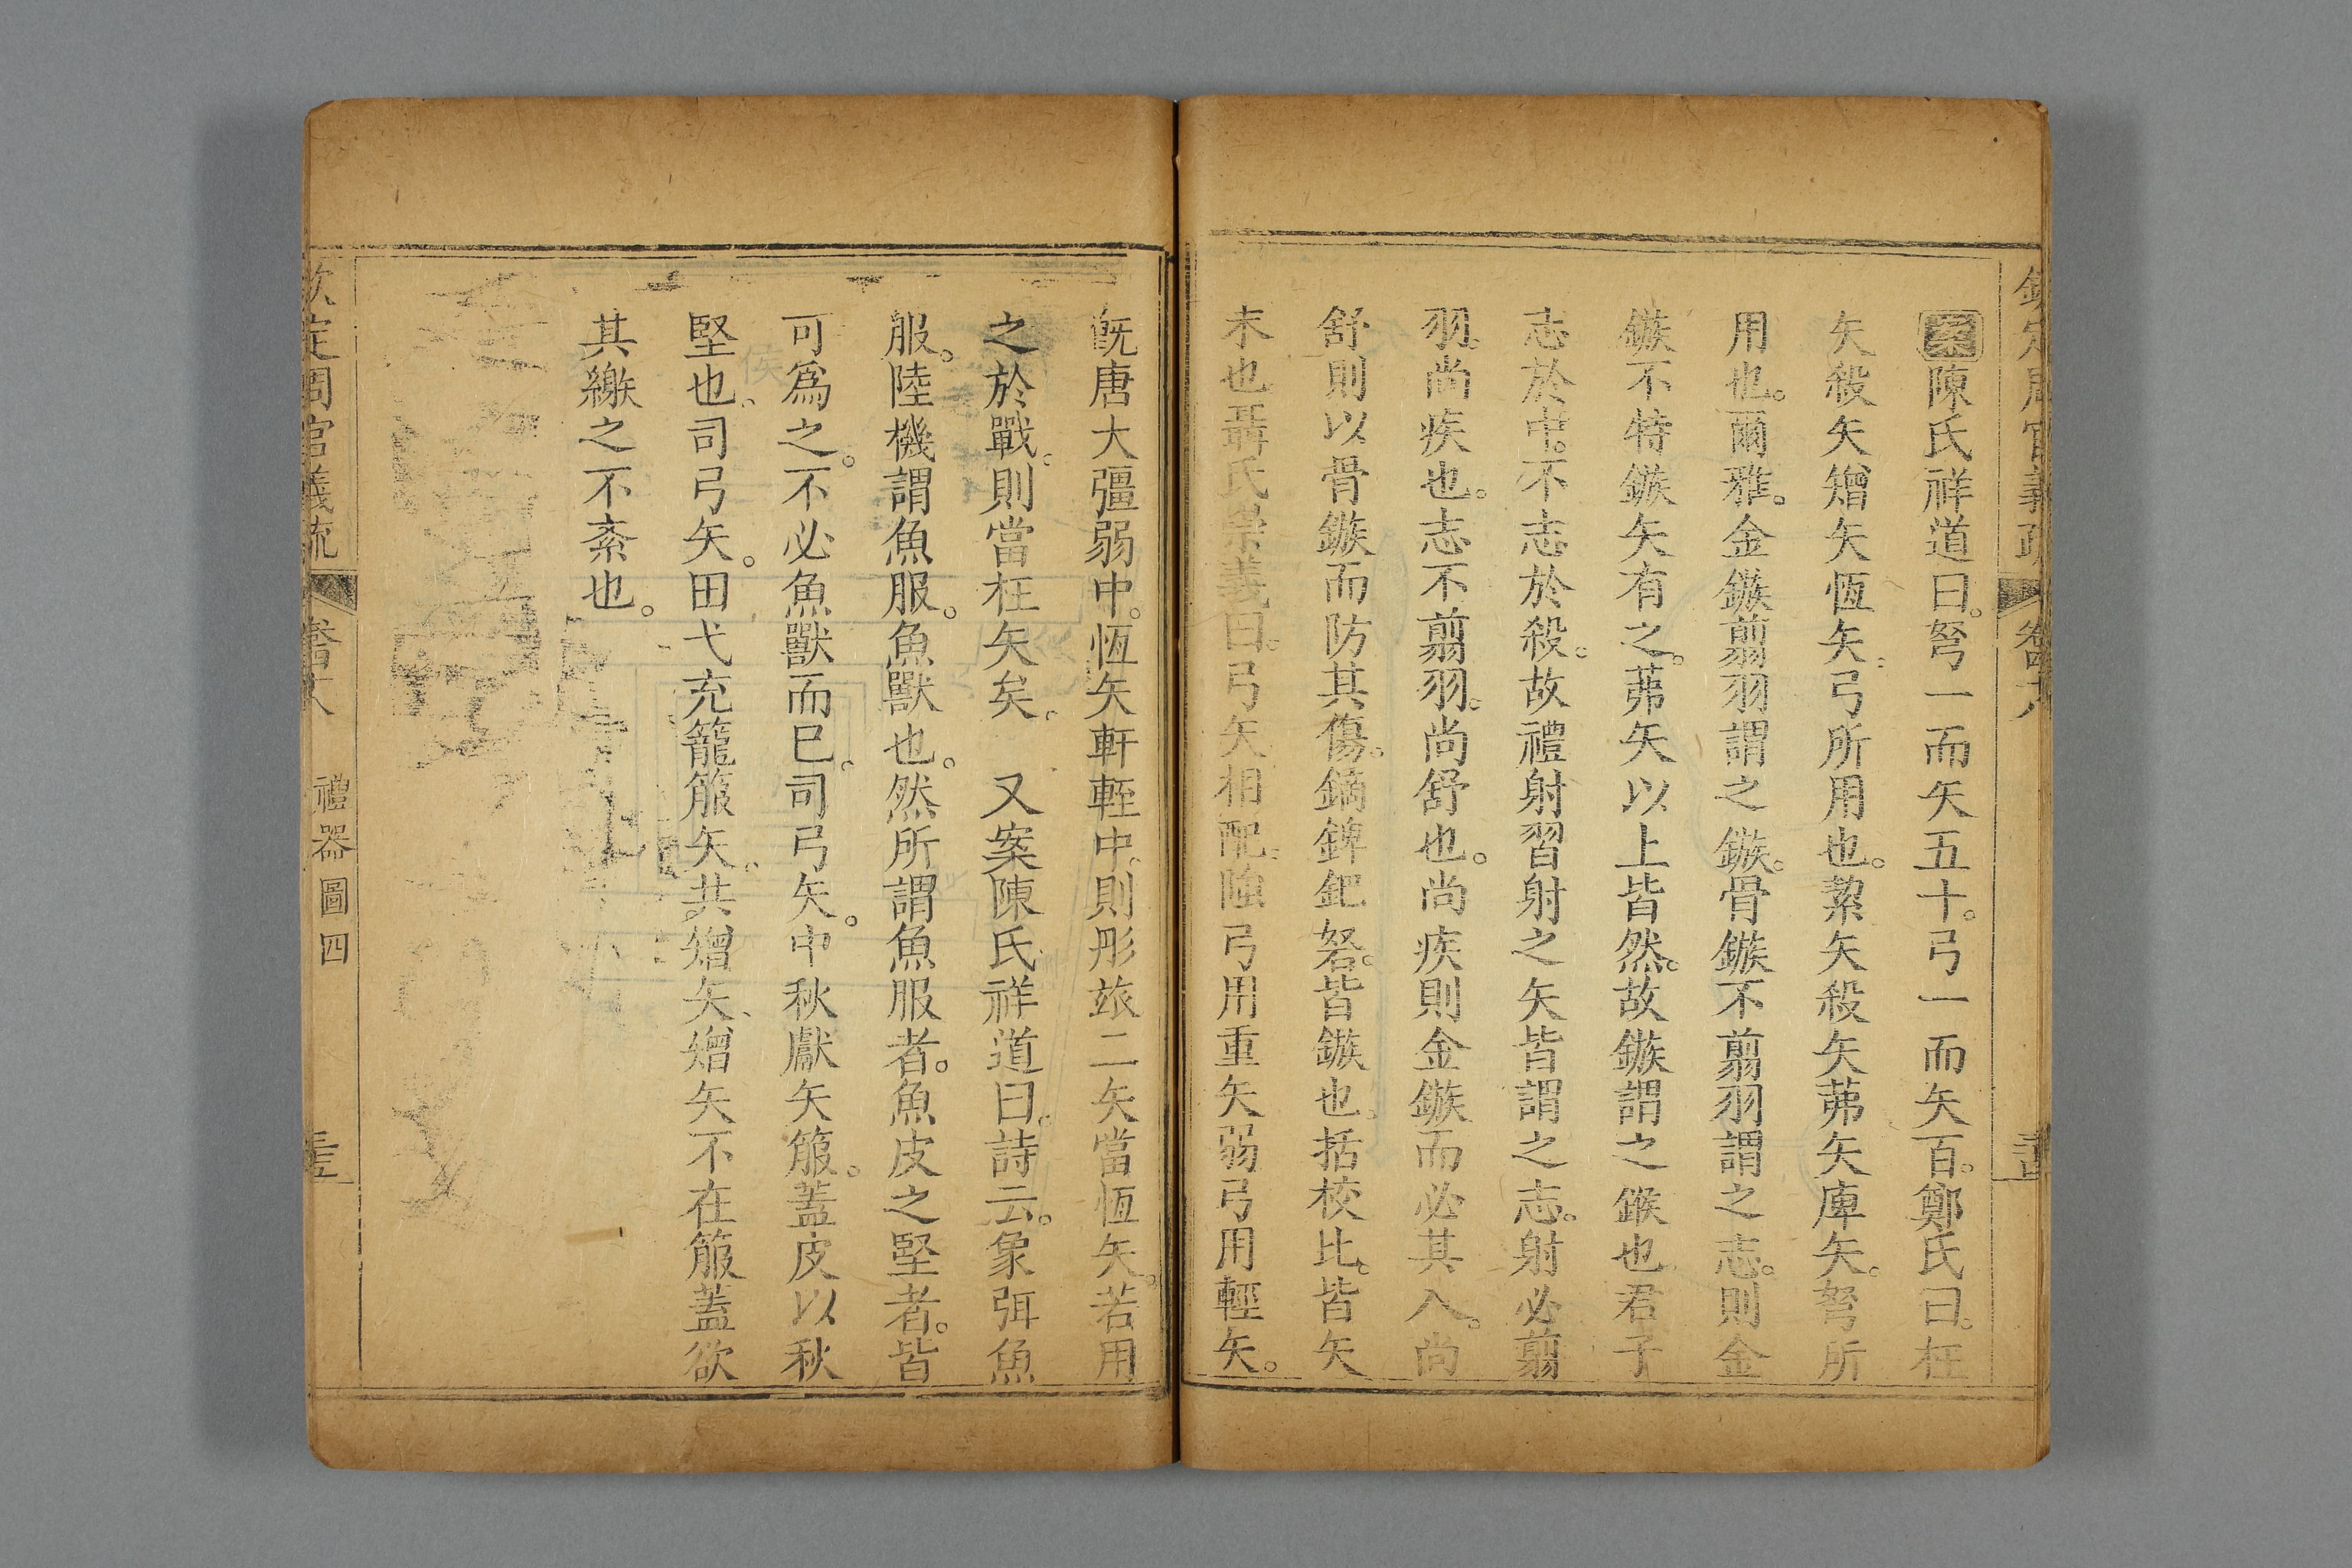 欽定周官義疏 卷四十八
案陳氏祥道曰。弩一而矢五十。弓一而矢百。鄭氏曰。枉
矢殺矢矰矢恆矢。弓所用也。絜矢殺矢茀矢庳矢。弩所
用也。爾雅。金鏃翦羽謂之鏃。骨鏃不翦羽謂之志。則金
鏃不特鏃矢有之。茀矢以上皆然。故鏃謂之鍭也君子
志於中。不志於殺。故禮射習射之矢皆謂之志。射必翦
羽。尚疾也。志不翦羽。尚舒也。尚疾則金鏃而必其入。尚
舒則以骨鏃而防其傷。鏑錍鈀砮。皆鏃也。括校比。皆矢
末也聶氏崇義曰。弓矢相配。強弓用重矢弱弓用輕矢。
旣唐大彊弱中。恆矢軒輊中。則彤玈二矢當恆矢。若用
之於戰。則當枉矢矣。 又案陳氏祥道曰。詩云。象弭魚
服。陸機謂魚服。魚獸也。然所謂魚服者。魚皮之堅者。皆
可爲之。不必魚獸而巳。司弓矢。中秋獻矢箙。蓋皮以秋
堅也。司弓矢。田弋充籠箙矢。共矰矢。矰矢不在箙蓋欲
其繳之不紊也。
欽定周官義疏
禮器圖四